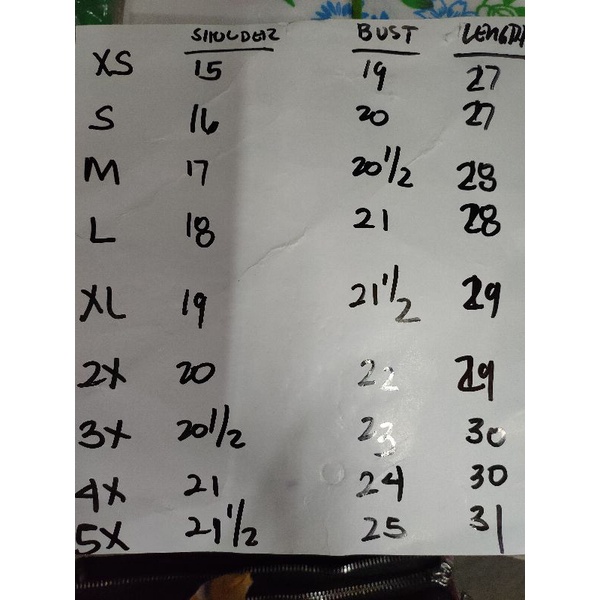 SHOULDER BUST LENGTH
XS 15 19 27
S 16 20 27
M 17 20 1/2 28
L 18 21 28
XL 19 21 1/2 29
2X 20 22 29
3X 20 1/2 23 30
4X 21 24 30
5X 21 1/2 25 31